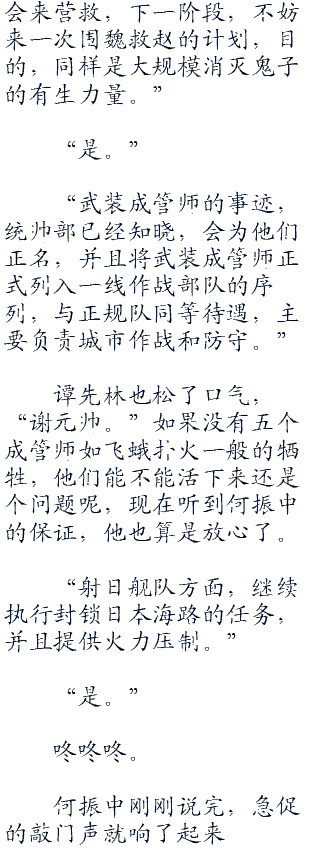 会来营救，下一阶段，不妨
来一次围魏救赵的计划，目
的，同样是大规模消灭鬼子
的有生力量。”
“是。”
“武装成管师的事迹，
统帅部已经知晓，会为他们
正名，并且将武装成管师正
式列入一线作战部队的序
列，与正规队同等待遇，主
要负责城市作战和防守。”
谭先林也松了口气，
“谢元帅。”如果没有五个
成管师如飞蛾扑火一般的牺
牲，他们能不能活下来还是
个问题呢，现在听到何振中
的保证，他也算是放心了。
“射日舰队方面，继续
执行封锁日本海路的任务，
并且提供火力压制。”
“是。”
咚咚咚。
何振中刚刚说完，急促
的敲门声就响了起来